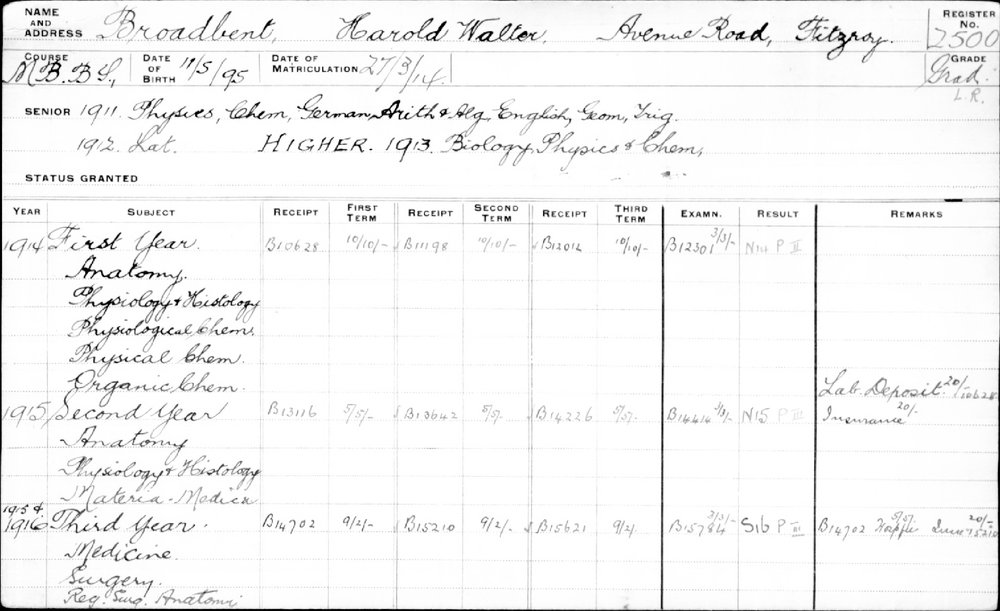 NAME AND ADDRESS Broadbent, Harold Walter. Avenue Road, Fitzroy. REGISTER No. 2500
COURSE M.B.B.S., DATE OF BIRTH 11/5/95 DATE OF MATRICULATION 27/3/14. GRADE Grad.
L.R.
SENIOR 1911. Physics, Chem, German, Arith & Alg, English, Geom, Trig.
1912. Lat. HIGHER. 1913. Biology, Physics & Chem,
STATUS GRANTED
YEAR SUBJECT RECEIPT FIRST TERM RECEIPT SECOND TERM RECEIPT THIRD TERM EXAMN. RESULT REMARKS
1914 First Year. B10628 10/10/- B11198 10/10/- B12012 10/10/- B12301 3/3/- N14 P II
Anatomy.
Physiology & Histology
Physiological Chem.
Physical Chem.
Organic Chem. Lab. Deposit 20/- 10628
1915 Second Year B13116 5/5/- B13642 5/5/- B14226 5/5/- B14414 3/3/- N15 P III Insurance 20/-
Anatomy
Physiology & Histology
Materia-Medica
1915 & 1916 Third Year. B14702 9/2/- B15210 9/2/- B15621 9/2/ B15784 3/3/- S16 P III B14702 5/5/- 20/- 15210
Medicine.
Surgery.
Reg. Surg. Anatomy